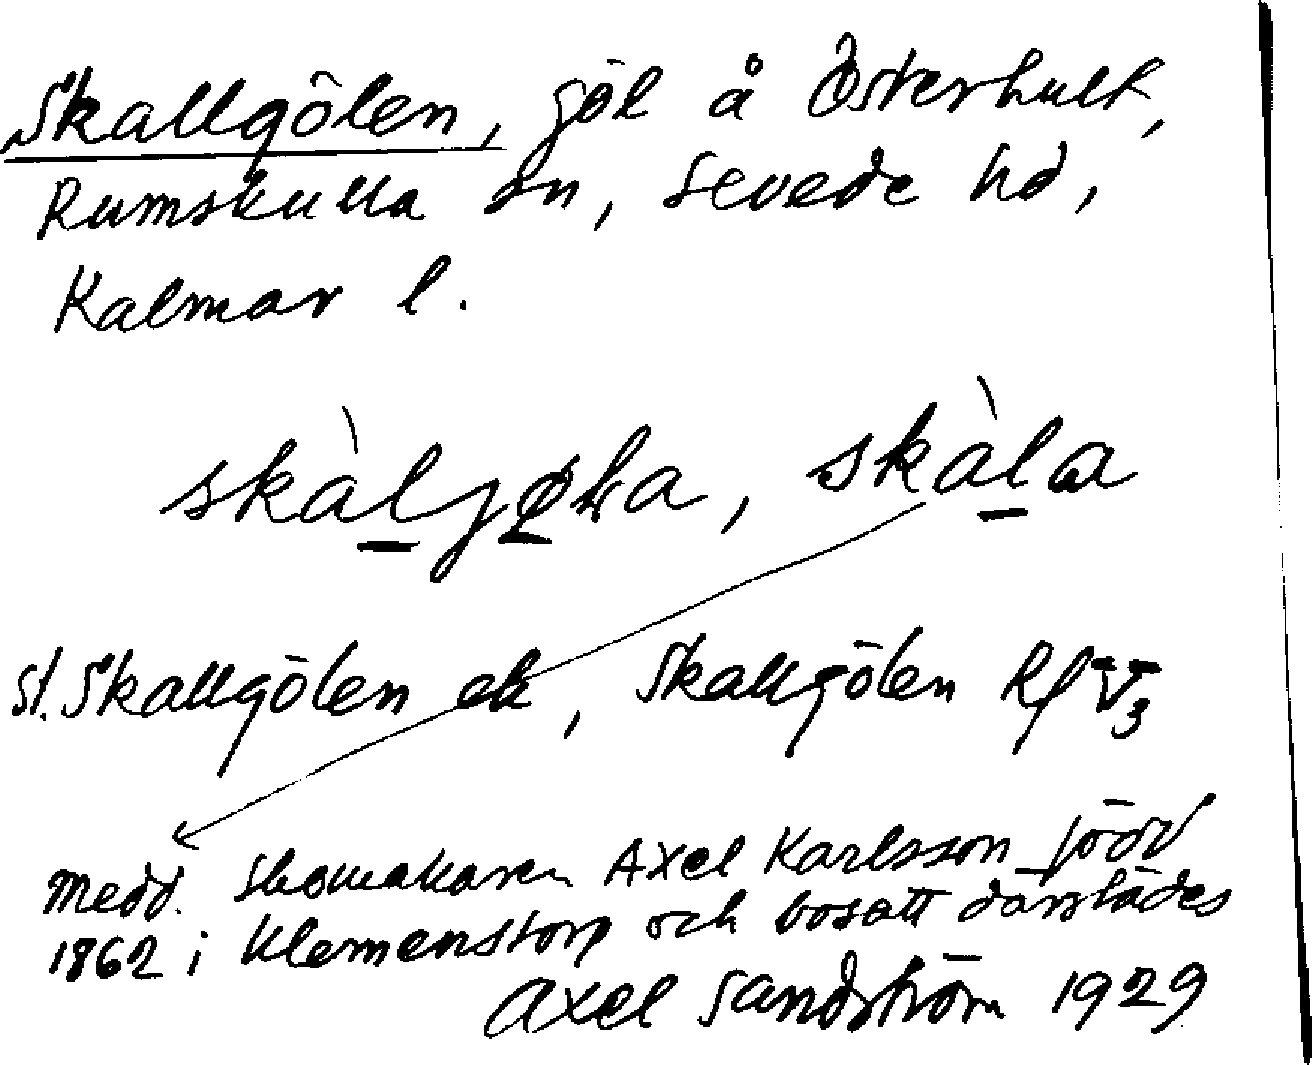 Skallgölen, göl å Österhult,
Rumskulla sn, Sevede hd,
Kalmar l.
skàljøka, skàla
St. Skallgölen ek, Skallgölen Rf V3
Medd. Skomakaren Axel Karlsson född
1862 i Klemenstorp och bosatt därstädes
Axel Sandström 1929